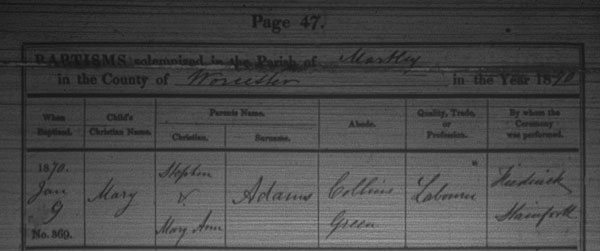 Page 47.
BAPTISMS solemnized in the Parish of Martley
in the County of Worcester in the Year 1870
When Baptized. Child's Christian Name. Parents Name. Christian. Surname. Abode. Quality, Trade, or Profession. By whom the Ceremony was performed.
1870. Stephen
Jan Mary & Adams Collins Labourer Frederick
9 Green
No. 369. Mary Ann